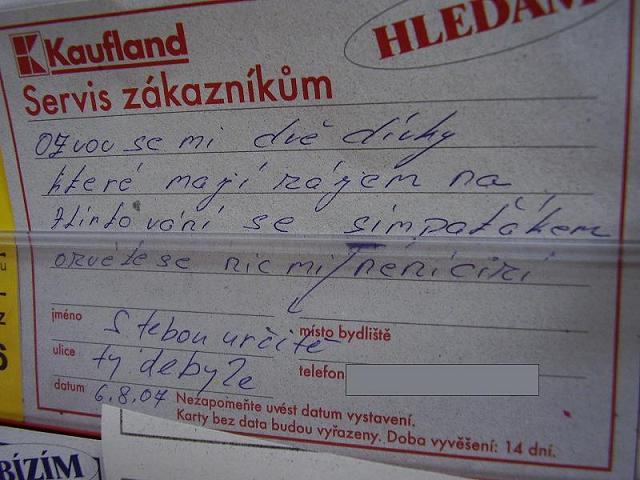 Kaufland
HLEDÁM
Servis zákazníkům
ozvou se mi dvě dívky
které mají zájem na
flirtování se simpaťákem
ozvěte se nic mi není cizí
jméno
S tebou určitě
místo bydliště
ulice
ty debyle
telefon
datum 6.8.07
Nezapomeňte uvést datum vystavení.
Karty bez data budou vyřazeny. Doba vyvěšení: 14 dní.
BÍZÍM